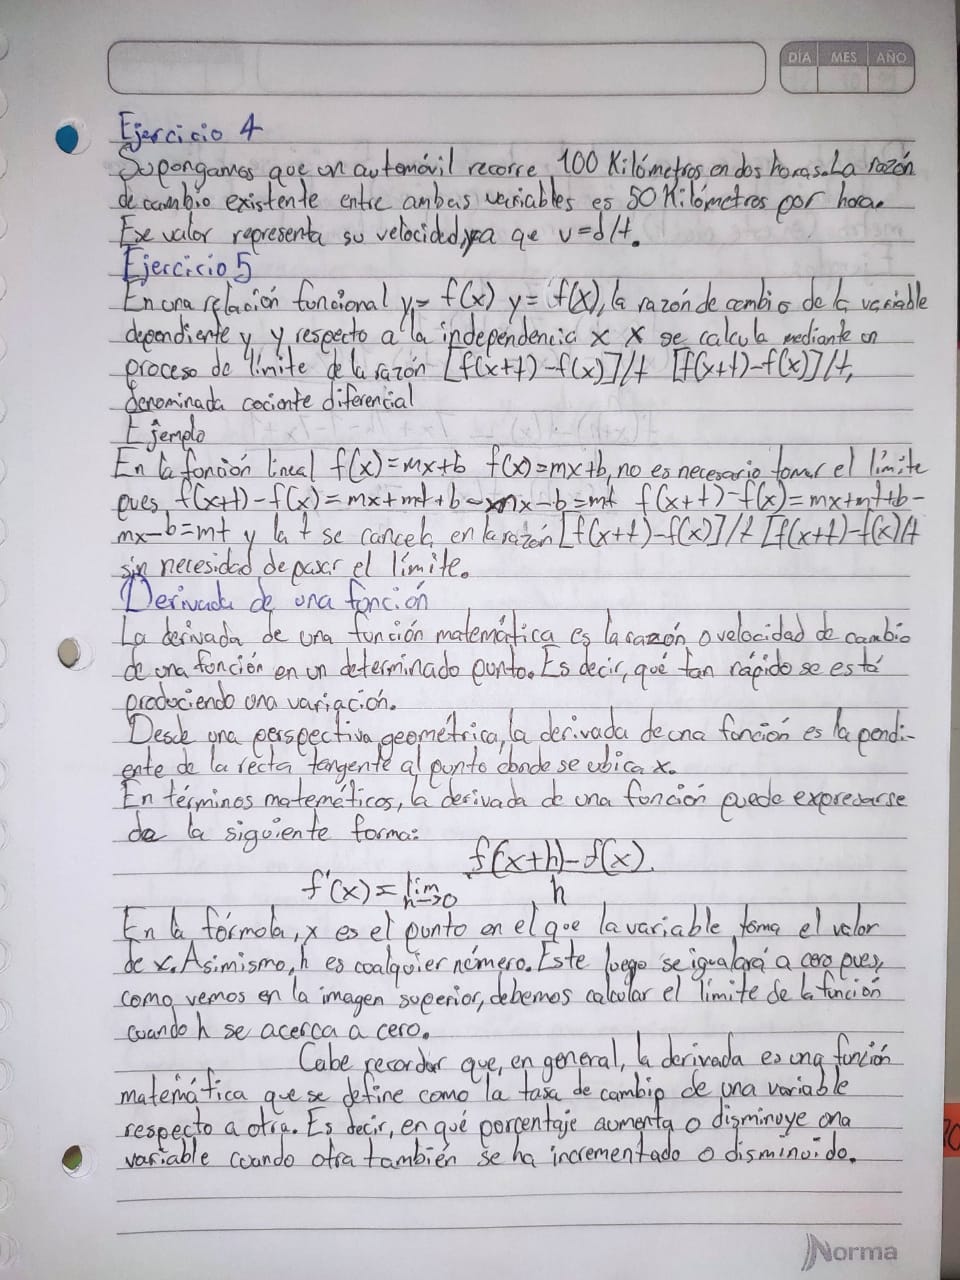 DÍA MES AÑO
Ejercicio 4
Supongamos que un automóvil recorre 100 Kilómetros en dos horas. La razón
de cambio existente entre ambas variables es 50 Kilómetros por hora.
Ese valor representa su velocidad, ya que v=d/t.
Ejercicio 5
En una relación funcional y= f(x) y= f(x), la razón de cambio de la variable
dependiente y y respecto a la independencia x x se calcula mediante un
proceso de límite de la razón [f(x+t)-f(x)]/t [f(x+t)-f(x)]/t,
denominada cociente diferencial
Ejemplo
En la función lineal f(x)=mx+b f(x)=mx+b, no es necesario tomar el límite
pues f(x+t)-f(x)=mx+mt+b-mx-b=mt f(x+t)-f(x)=mx+mt+b-
mx-b=mt y la t se cancela en la razón [f(x+t)-f(x)]/t [f(x+t)-f(x)/t
sin necesidad de pasar el límite.
Derivada de una función
La derivada de una función matemática es la razón o velocidad de cambio
de una función en un determinado punto. Es decir, qué tan rápido se está
produciendo una variación.
Desde una perspectiva geométrica, la derivada de una función es la pendi-
ente de la recta tangente al punto donde se ubica x.
En términos matemáticos, la derivada de una función puede expresarse
de la siguiente forma:
f(x+h)-f(x).
f'(x)= lim
h->0 h
En la fórmula, x es el punto en el que la variable toma el valor
de x. Asimismo, h es cualquier número. Este luego se igualará a cero pues,
como vemos en la imagen superior, debemos calcular el límite de la función
cuando h se acerca a cero.
Cabe recordar que, en general, la derivada es una función
matemática que se define como la tasa de cambio de una variable
respecto a otra. Es decir, en qué porcentaje aumenta o disminuye una
variable cuando otra también se ha incrementado o disminuido.
Norma